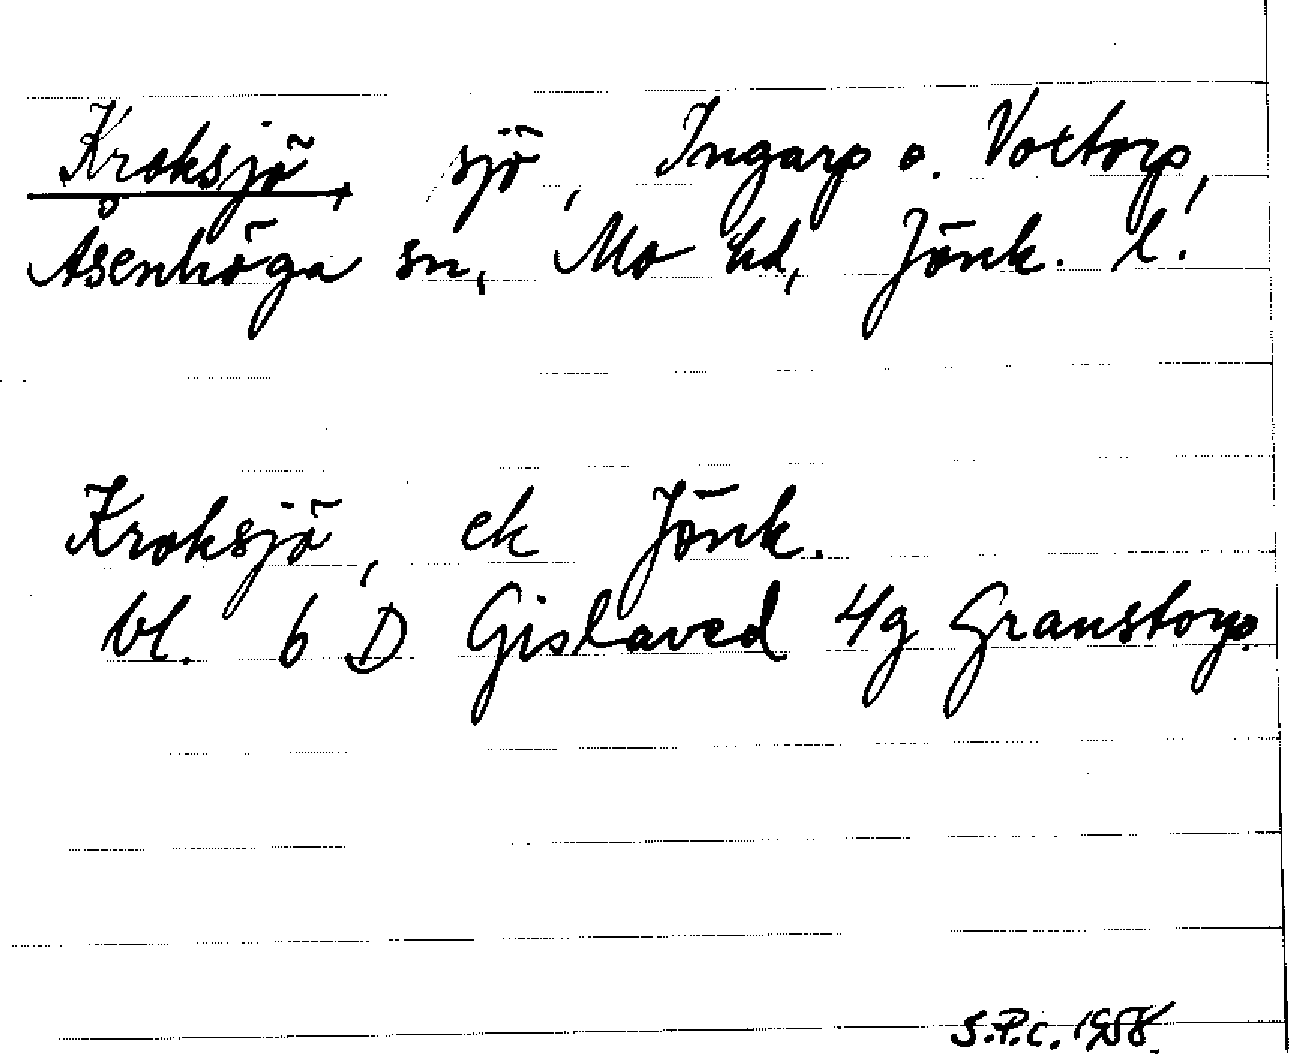 Kroksjö, sjö, Ingarp o. Voxtorp,
Åsenhöga sn, Mo hd, Jönk. l.
Kroksjö, ek Jönk.
bl. 6 D Gislaved 4g Granstorp.
S.P.C. 1958